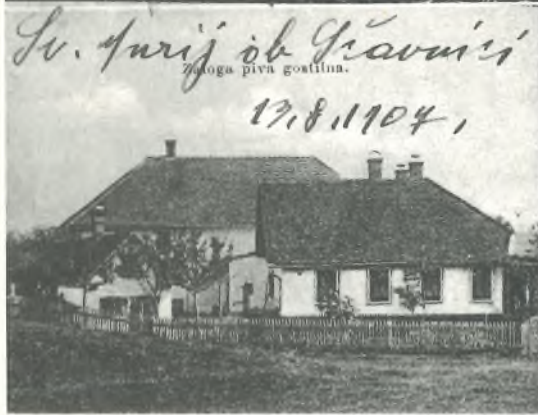 Sv. Jurij ob Ščavnici
Zaloga piva gostilna.
13.8.1907,